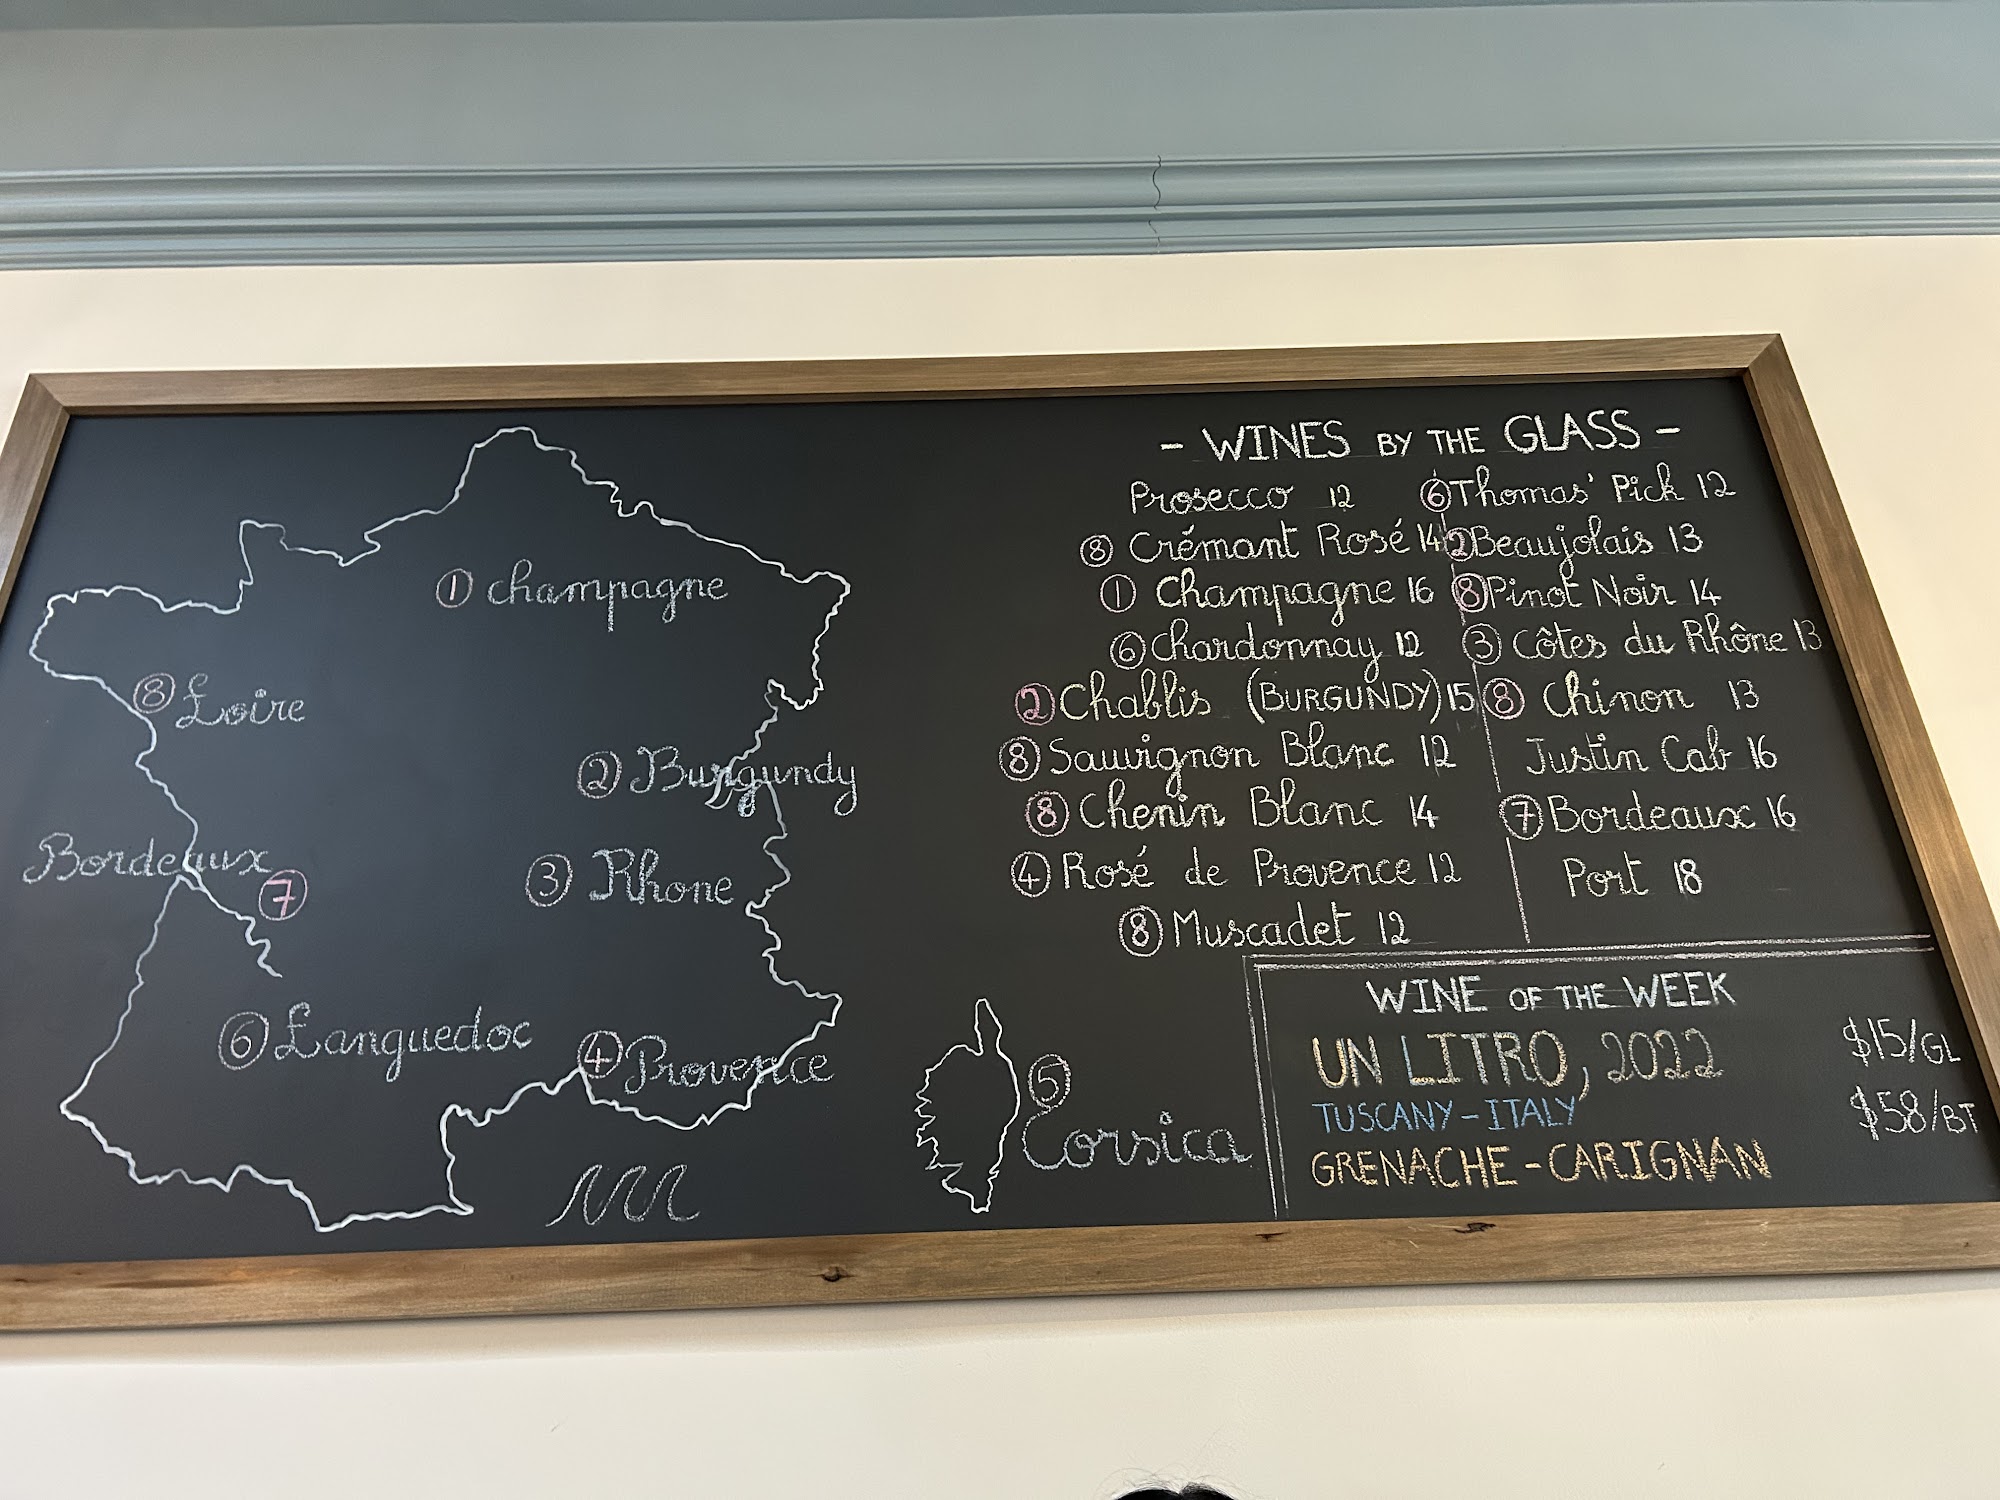 ① Champagne
⑧ Loire
② Burgundy
Bordeaux
⑦
③ Rhone
⑥ Languedoc
④ Provence
⑤
Corsica
- WINES BY THE GLASS -
Prosecco 12
⑧ Crémant Rosé 14
① Champagne 16
⑥ Chardonnay 12
② Chablis (BURGUNDY) 15
⑧ Sauvignon Blanc 12
⑧ Chenin Blanc 14
④ Rosé de Provence 12
⑧ Muscadet 12
⑥ Thomas' Pick 12
② Beaujolais 13
⑧ Pinot Noir 14
③ Côtes du Rhône 13
⑧ Chinon 13
Justin Cab 16
⑦ Bordeaux 16
Port 18
WINE OF THE WEEK
UN LITRO, 2022 $15/GL
TUSCANY-ITALY $58/BT
GRENACHE-CARIGNAN